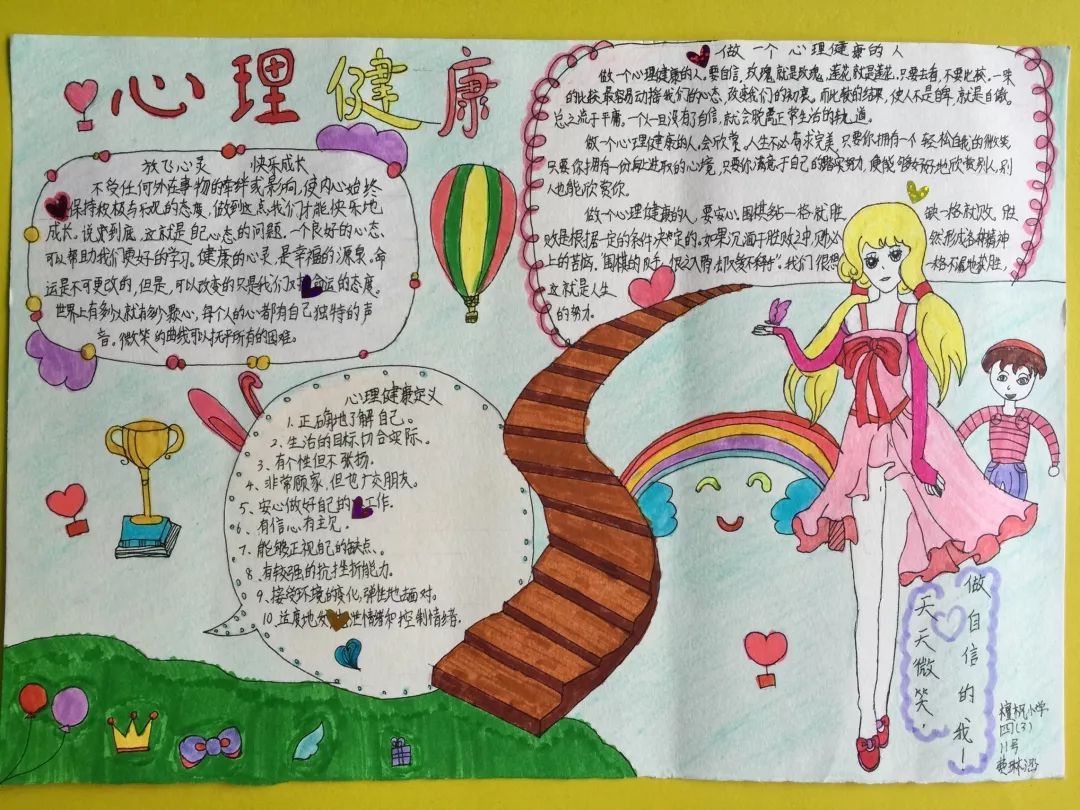 心理健康
放飞心灵 快乐成长
不受任何外在事物的牵绊或影响,使内心始终
保持积极与乐观的态度,做到这点我们才能快乐地
成长。说到到底,这就是自己心态的问题,一个良好的心态,
可以帮助我们更好的学习。健康的心灵,是幸福的源泉。命
运是不可更改的,但是,可以改变的只是我们对 命运的态度。
世界上有多少人就有多少颗心,每个人的心都有自己独特的声
音。微笑的曲线可以抚平所有的困难。
做一个心理健康的人
做一个心理健康的人,要自信,玫瑰就是玫瑰,莲花就是莲花,只要去看,不要比较。一味
的比较最容易动摇我们的心态,改变我们的初衷。而比较的结果,使人不是自卑,就是自傲。
总之流于平庸。一个人一旦没有了自信,就会脱离正常生活的轨道。
做一个心理健康的人,会欣赏,人生不必苛求完美,只要你拥有一个轻松自我的微笑
只要你拥有一份奋进进取的心境,只要你满意于自己的踏实努力,便能够好好地欣赏别人,别
人也能欣赏你。
做一个心理健康的人,要安心。围棋多占一格就胜 缺一格就败,胜
败是根据一定的条件决定的。如果沉湎于胜败之中,则必 然形成各种精神
上的苦痛。围棋的
上的 我们很想 一格不漏地获胜,
这就是人生
的努力。
心理健康定义
1.正确地了解自己。
2、生活的目标切合实际。
3、有个性但不张扬。
4、非常顾家,但也广交朋友。
5、安心做好自己的 工作。
6、有信心有主见。
7、能够正视自己的缺点、。
8、有较强的抗挫折能力。
9、接受环境的变化,弹性地去面对。
10、适度地 泄情绪和控制情绪.
做自信的我!
天天微笑!
小学
四(3)
11号